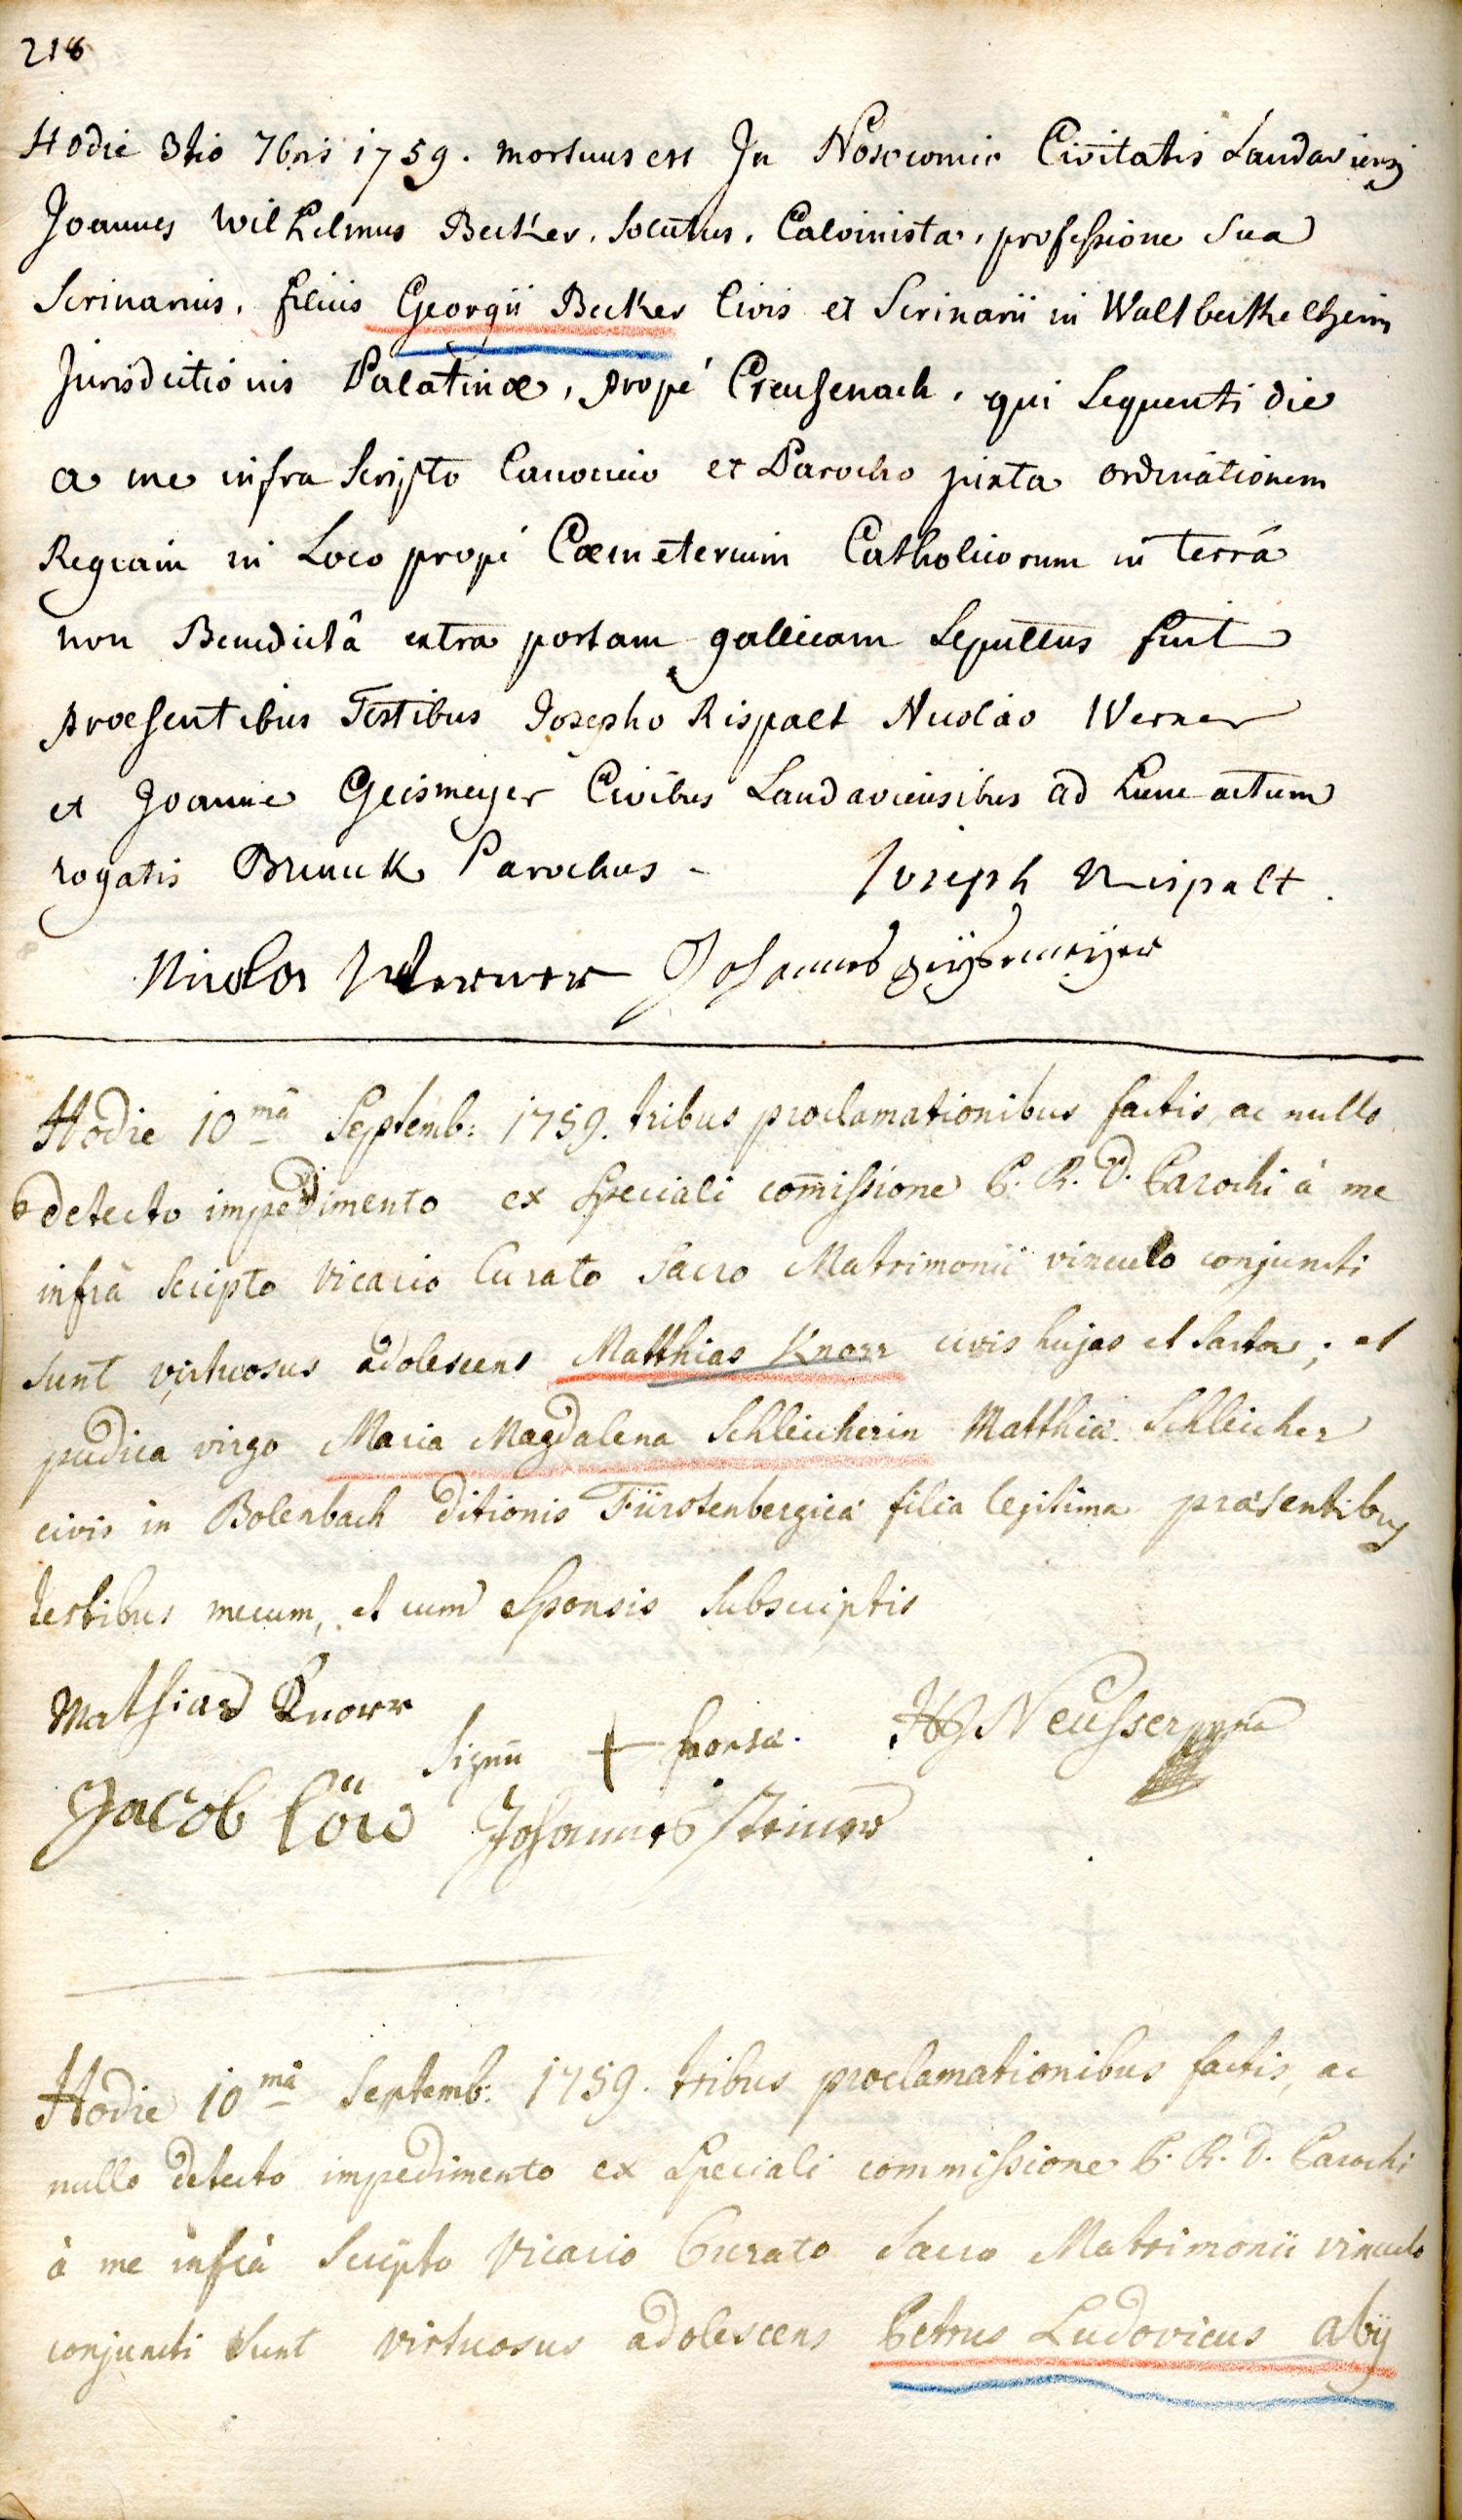 218
Hodie 3tio 7bris 1759. mortuus est In Nosocomio Civitatis Landaviensi
Joannes Wilhelmus Becker, solutus, Calvinista, professione sua
Scrinarius, filius Georgii Becker Civis et Scrinarii in Waltbeckelheim
Jurisdictionis Palatinæ, propé Creusenach, qui sequenti die
a me infra scripto Canonico et Parocho juxta ordinationem
Regiam in Loco propé Cœmeterium Catholicorum in terrâ
non Benedictâ extra portam gallicam sepultus fuit
præsentibus Testibus Josepho Rispalt Nicolao Werner
et Joanne Geismeyer Civibus Landaviensibus ad hunc actum
rogatis Brunck Parochus -
Joseph Rispalt.
Nicolas Werner Johannes Geysemeyer
Hodie 10mâ Septemb: 1759. tribus proclamationibus factis, ac nullo
detecto impedimento ex speciali com̄issione P. R. D. Parochi à me
infrà scripto Vicario Curato Sacro Matrimonii vinculo conjuncti
sunt virtuosus adolescens Matthias Knorr civis hujas et Sartor; et
pudica virgo Maria Magdalena Schleicherin Matthiæ Schleicher
civis in Bolenbach ditionis Fürstenbergicæ filia legitima præsentibus
testibus mecum, et cum Sponsis subscriptis
Mathias Knorr
Signū + sponsæ. Neusser
Jacob Löw Johannes Steiner
Hodie 10mâ Septemb: 1759. tribus proclamationibus factis, ac
nullo detecto impedimento ex speciali commissione P. R. D. Parochi
à me infrà scripto Vicario Curato Sacro Matrimonii vinculo
conjuncti sunt virtuosus adolescens Petrus Ludovicus aby